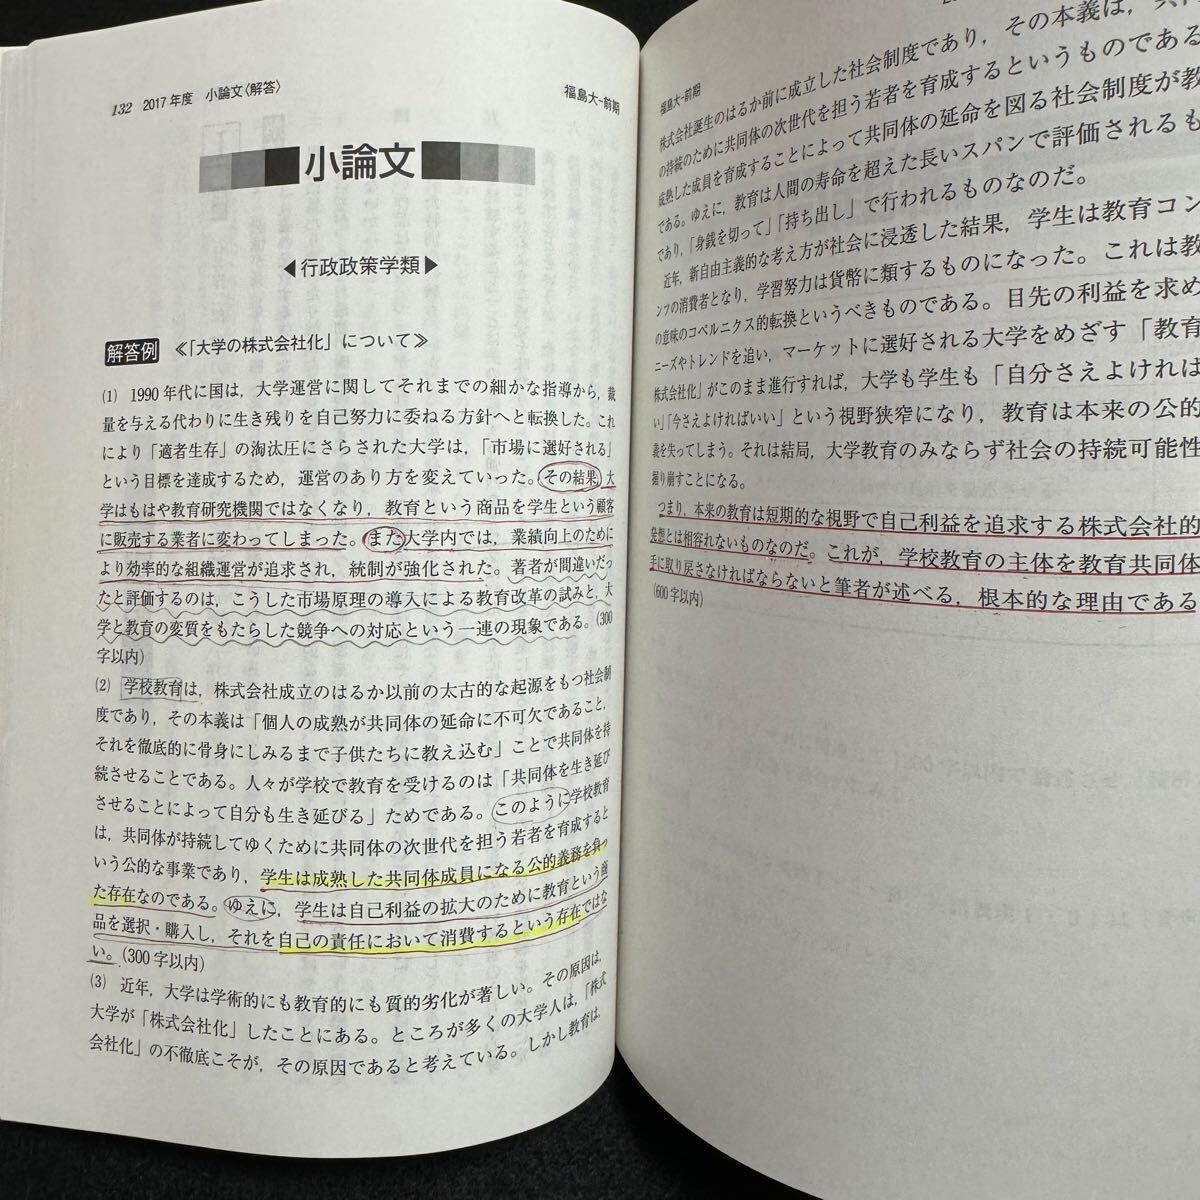 132 2017年度 小論文〈解答〉
福島大-前期
小論文
◀行政政策学類▶
解答例 ≪「大学の株式会社化」について≫
(1) 1990年代に国は，大学運営に関してそれまでの細かな指導から，裁
量を与える代わりに生き残りを自己努力に委ねる方針へと転換した。これ
により「適者生存」の淘汰圧にさらされた大学は，「市場に選好される」
という目標を達成するため，運営のあり方を変えていった。その結果，大
学はもはや教育研究機関ではなくなり，教育という商品を学生という顧客
に販売する業者に変わってしまった。また大学内では，業績向上のために
より効率的な組織運営が追求され，統制が強化された。著者が間違いだっ
たと評価するのは，こうした市場原理の導入による教育改革の試みと，大
学と教育の変質をもたらした競争への対応という一連の現象である。(300
字以内)
(2) 学校教育は，株式会社成立のはるか以前の太古的な起源をもつ社会制
度であり，その本義は「個人の成熟が共同体の延命に不可欠であること，
それを徹底的に骨身にしみるまで子供たちに教え込む」ことで共同体を持
続させることである。人々が学校で教育を受けるのは「共同体を生き延び
させることによって自分も生き延びる」ためである。このように学校教育
は，共同体が持続してゆくために共同体の次世代を担う若者を育成すると
いう公的な事業であり，学生は成熟した共同体成員になる公的義務を負っ
た存在なのである。ゆえに，学生は自己利益の拡大のために教育という商
品を選択・購入し，それを自己の責任において消費するという存在ではな
い。(300字以内)
(3) 近年，大学は学術的にも教育的にも質的劣化が著しい。その原因は，
大学が「株式会社化」したことにある。ところが多くの大学人は，「株式
会社化」の不徹底こそが，その原因であると考えている。しかし教育は，
福島大-前期
株式会社誕生のはるか前に成立した社会制度であり，その本義は，共同
の持続のために共同体の次世代を担う若者を育成するというものである
成熟した成員を育成することによって共同体の延命を図る社会制度が教
である。ゆえに，教育は人間の寿命を超えた長いスパンで評価されるも
であり，「身銭を切って」「持ち出し」で行われるものなのだ。
近年，新自由主義的な考え方が社会に浸透した結果，学生は教育コン
ンツの消費者となり，学習努力は貨幣に類するものになった。これは教
の意味のコペルニクス的転換というべきものである。目先の利益を求め
ニーズやトレンドを追い，マーケットに選好される大学をめざす「教育
株式会社化」がこのまま進行すれば，大学も学生も「自分さえよければ
い」「今さえよければいい」という視野狭窄になり，教育は本来の公的
義を失ってしまう。それは結局，大学教育のみならず社会の持続可能性
掘り崩すことになる。
つまり，本来の教育は短期的な視野で自己利益を追求する株式会社的
発想とは相容れないものなのだ。これが，学校教育の主体を教育共同体
手に取り戻さなければならないと筆者が述べる，根本的な理由である
(600字以内)